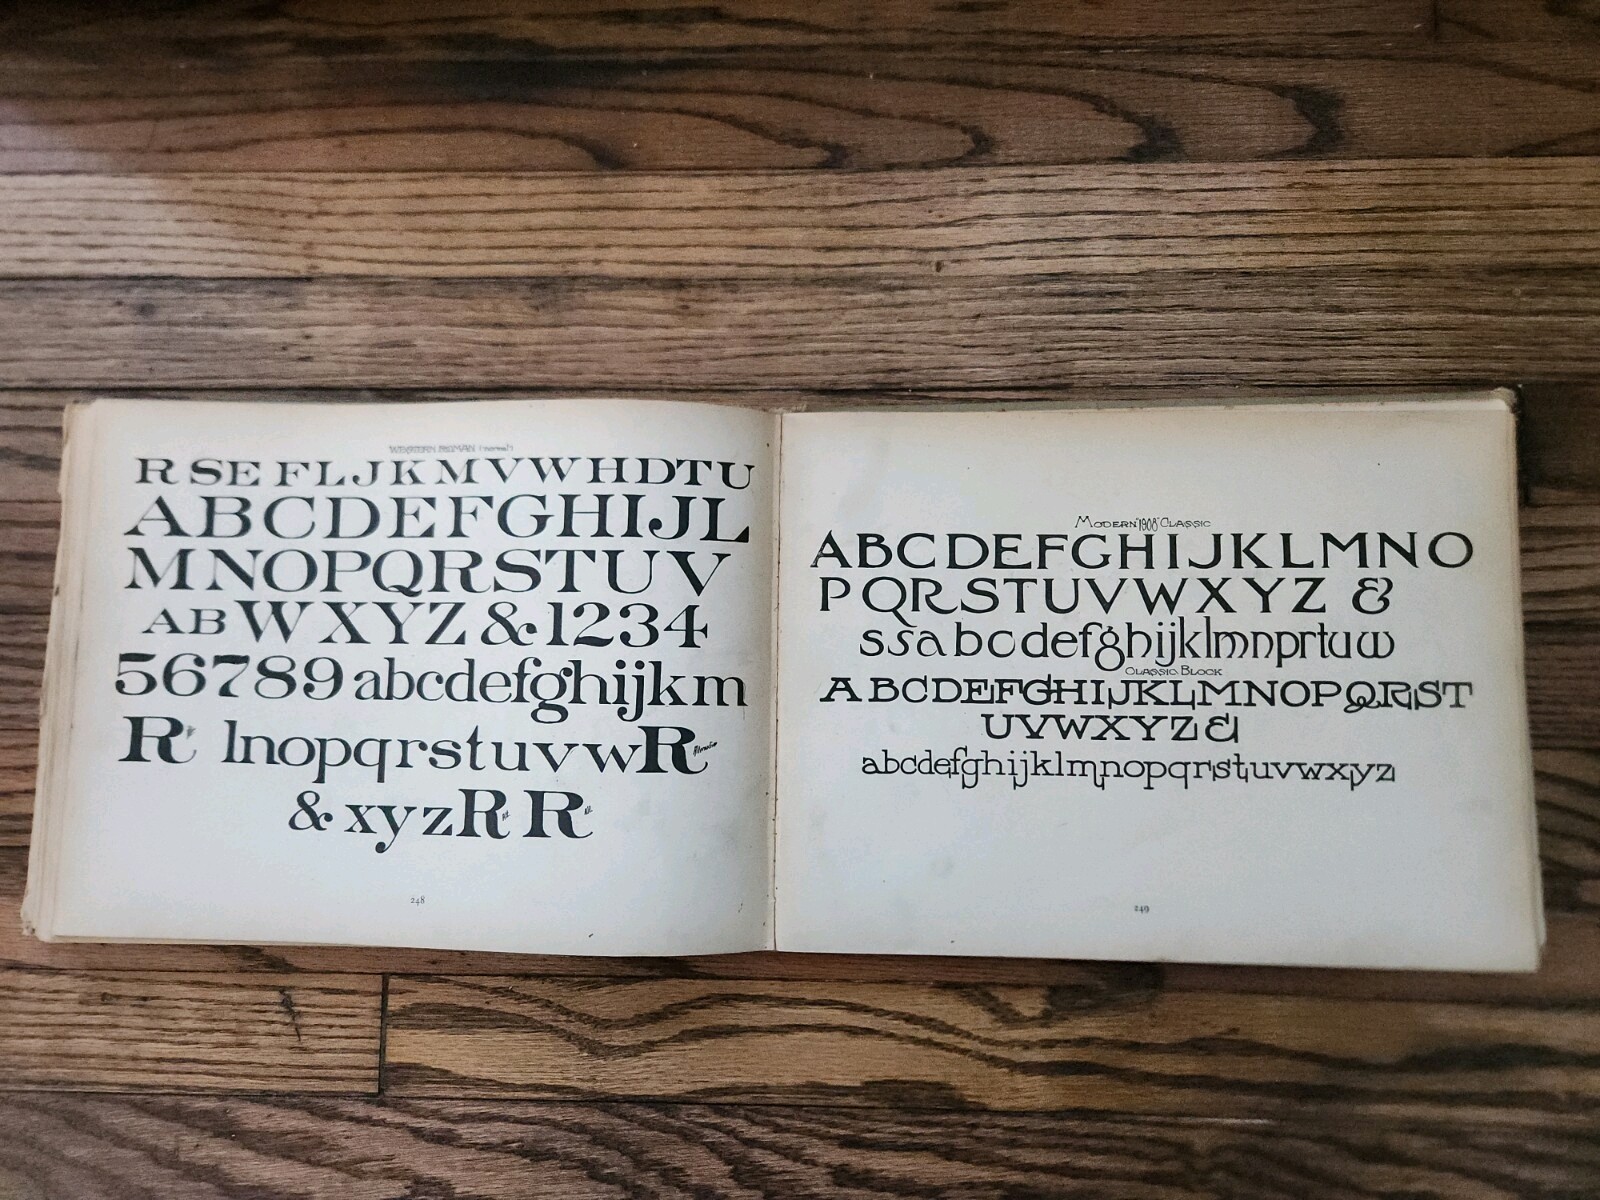 WESTERN ROMAN (normal)
R SE FL J K M V W H D T U
ABCDEFGHIJL
MNOPQRSTUV
AB WXYZ & 1234
56789 abcdefghijkm
R lnopqrstuvw R
& xyz R R
248
MODERN "1908" CLASSIC
ABCDEFGHIJKLMNO
PQRSTUVWXYZ &
s s a b c d e f g h i j k l m n p r t u w
CLASSIC BLOCK
ABCDEFGHIJKLMNOPQRST
UVWXYZ &
abcdefghijklmnopqrstuvwxyz
249